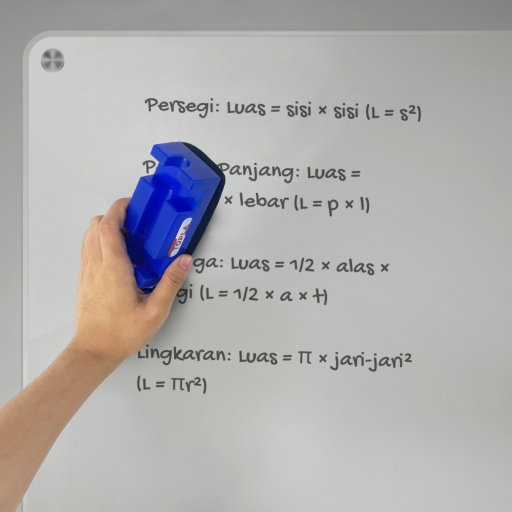 Persegi: Luas = sisi × sisi (L = s²)
Panjang: Luas =
× lebar (L = p × l)
Luas = 1/2 × alas ×
(L = 1/2 × a × t)
Lingkaran: Luas = π × jari-jari²
(L = πr²)